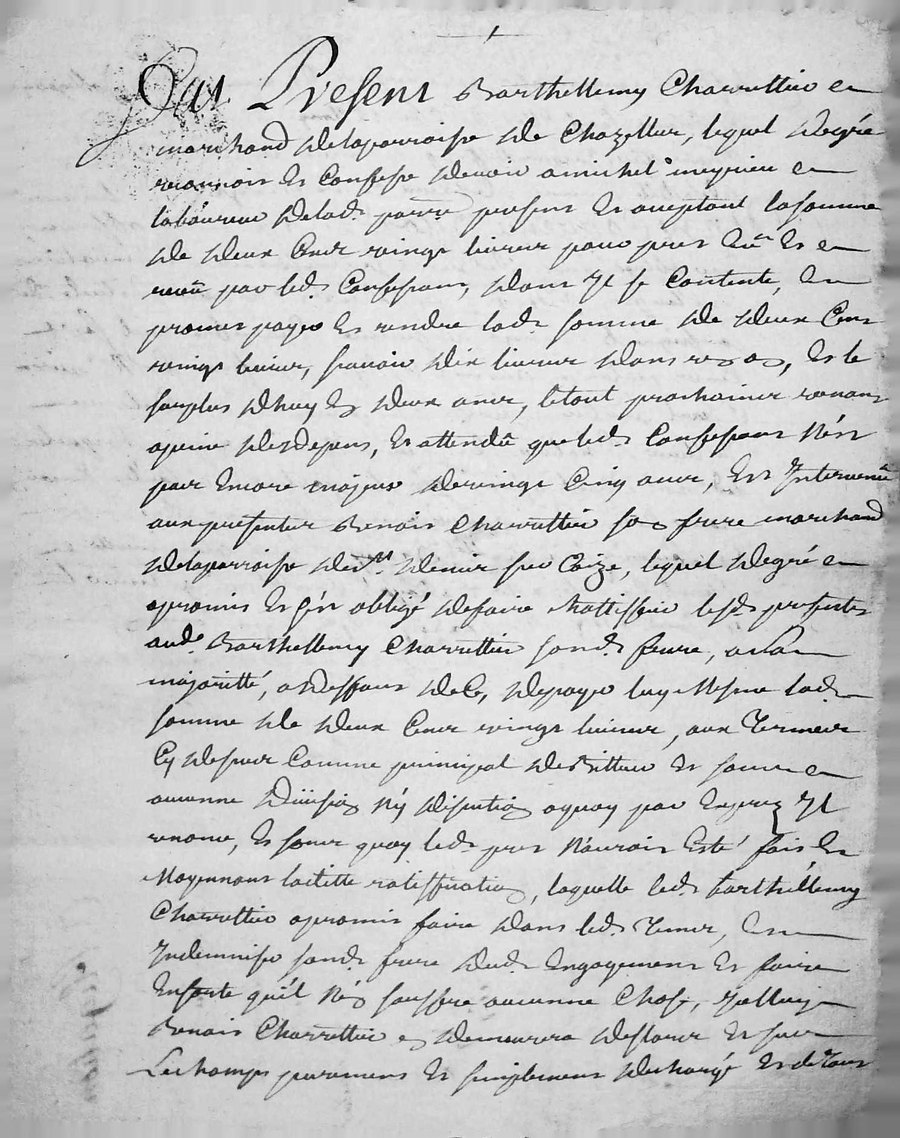 Par Present Barthellemy Charrettier
marchand delaparroisse de Chazelles, lequel degré
reconnois et Confesse devoir a michel meynieu
laboureur delad. parr. presens et aceptant lasomme
de deux Cens vingt livres pour prest eu et
receu par led. Confessans, dont Il se Contente, et
promes payer et rendre lad. somme de deux Cens
vingt livres, savoir dix livres dans, et le
surplus dhuy en deux ans, letout prochains venans
apeine desdepens, et attendu queled. Confessans nest
pas Encore majeur devingt Cinq ans, est Intervenu
aux presentes Benoist Charrettier son frere marchand
delaparroisse dest. denis sur Coize, lequel degré
apromis et sest obligé defaire Rattiffier lesd. presentes
aud. Barthellemy Charrettier sond. frere, asa
majoritté, adeffaut dece, depayer luy Mesme lad.
somme de deux Cens vingt livres, aux Termes
Cy dessus Comme principal debitteur et sans
aucunne Division Ny discution aquoy par Exprez Il
renonce, et sans quoy led. prest Nauroit Esté fait et
Moyennant laditte ratiffication, laquelle led. Barthellemy
Charrettier apromis faire dans led. Temps, et
Indemniser sond. frere dud. Engagement et faire
Ensorte quil Nen souffre aucunne Chose,
Benoist Charrettier en demeurera deslors et sur
Lechamps purement et simplement dechargé et de tous